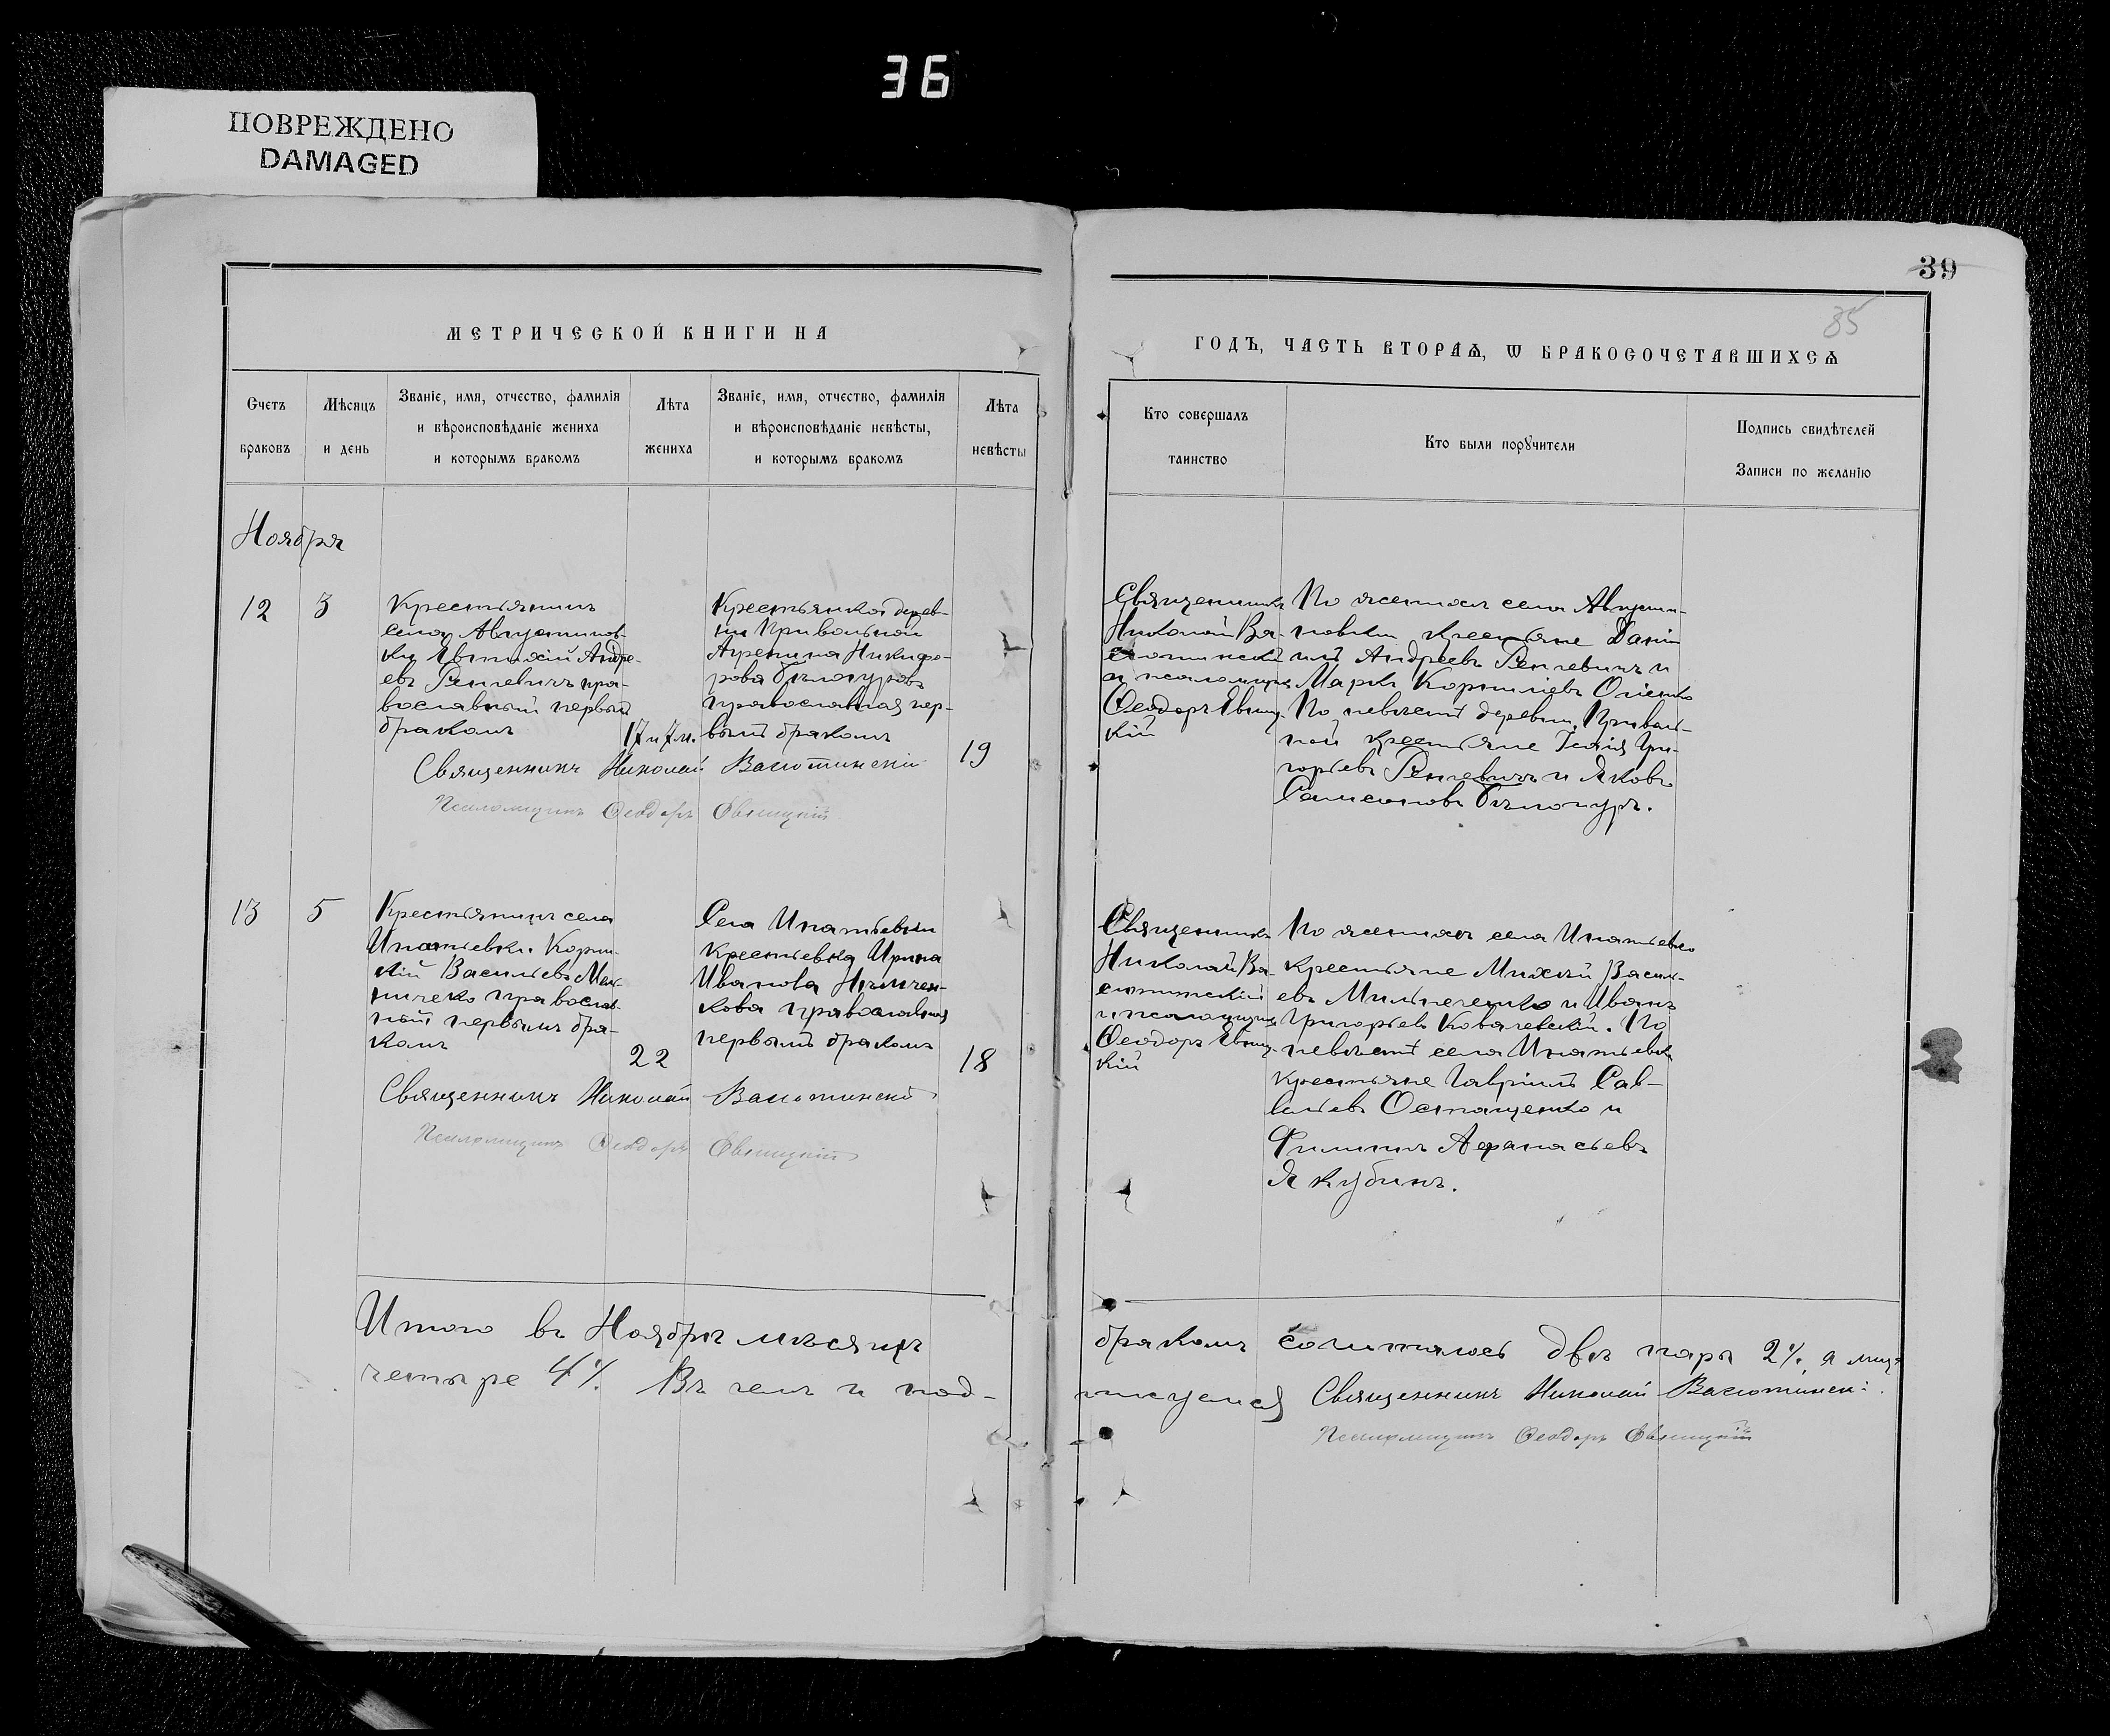 36
ПОВРЕЖДЕНО
DAMAGED
39
35
МЕТРИЧЕСКОЙ КНИГИ НА
ГОДЪ, ЧАСТЬ ВТОРАѦ, Ѡ БРАКОСОЧЕТАВШИХСѦ
Счетъ браковъ
Мѣсяцъ и день
Званіе, имя, отчество, фамилія
и вѣроисповѣданіе жениха
и которымъ бракомъ
Лѣта жениха
Званіе, имя, отчество, фамилія
и вѣроисповѣданіе невѣсты,
и которымъ бракомъ
Лѣта невѣсты
Кто совершалъ
таинство
Кто были порꙋчители
Подпись свидѣтелей
Записи по желанію
Ноября
12
3
Крестьянинъ
села Августинов-
ки Андре-
евъ Ренчевичъ пра-
вославный первый
бракомъ
17 и 7 м.
Крестьянка дерев-
ни Привольной
Агрепина Никифо-
рова Бѣлогурова
православная пер-
вымъ бракомъ
19
Священникъ
Николай Ва-
сютинскій
и псаломщик
Ѳеодоръ Евниц-
кій
По женихѣ села Августи-
новки крестьяне Дані
илъ Андреевъ Ренчевичъ и
Маркъ Корниліевъ
По невѣстѣ деревни Приволь-
ной крестьяне Исаія Гри-
горьевъ Ренчевичъ и Яковъ
Самсоновъ Бѣлогуръ.
Священникъ Николай Васютинскій
Псаломщикъ Ѳеодоръ Евницкій
13
5
Крестьянинъ села
Игнатьевки Корни-
лій Васильевъ Мел-
ничеко православ-
ный первымъ бра-
комъ
22
Села Игнатьевки
крестьевка Ирина
Иванова Нѣмичен-
кова православная
первымъ бракомъ
18
Священникъ
Николай Ва-
сютинскій
и псаломщик
Ѳеодоръ Евниц-
кій
По женихѣ села Игнатьевко
крестьяне Михей Василь-
евъ Мильниченко и Иванъ
Григорьевъ Ковалевскій. По
невѣстѣ села Игнатьевки
крестьяне Гавріилъ Сав-
вельевъ Остащенко и
Филиппъ Аѳанасьевъ
Якубинъ.
Священникъ Николай Васютинскій
Псаломщикъ Ѳеодоръ Евницкій
Итого въ Ноябрѣ мѣсяцѣ
бракомъ сочиталось двѣ пары 2%. а лицъ
четыре 4%. Въ чемъ и под-
писуемся Священникъ Николай Васютинскі
Псаломщикъ Ѳеодоръ Евницкій